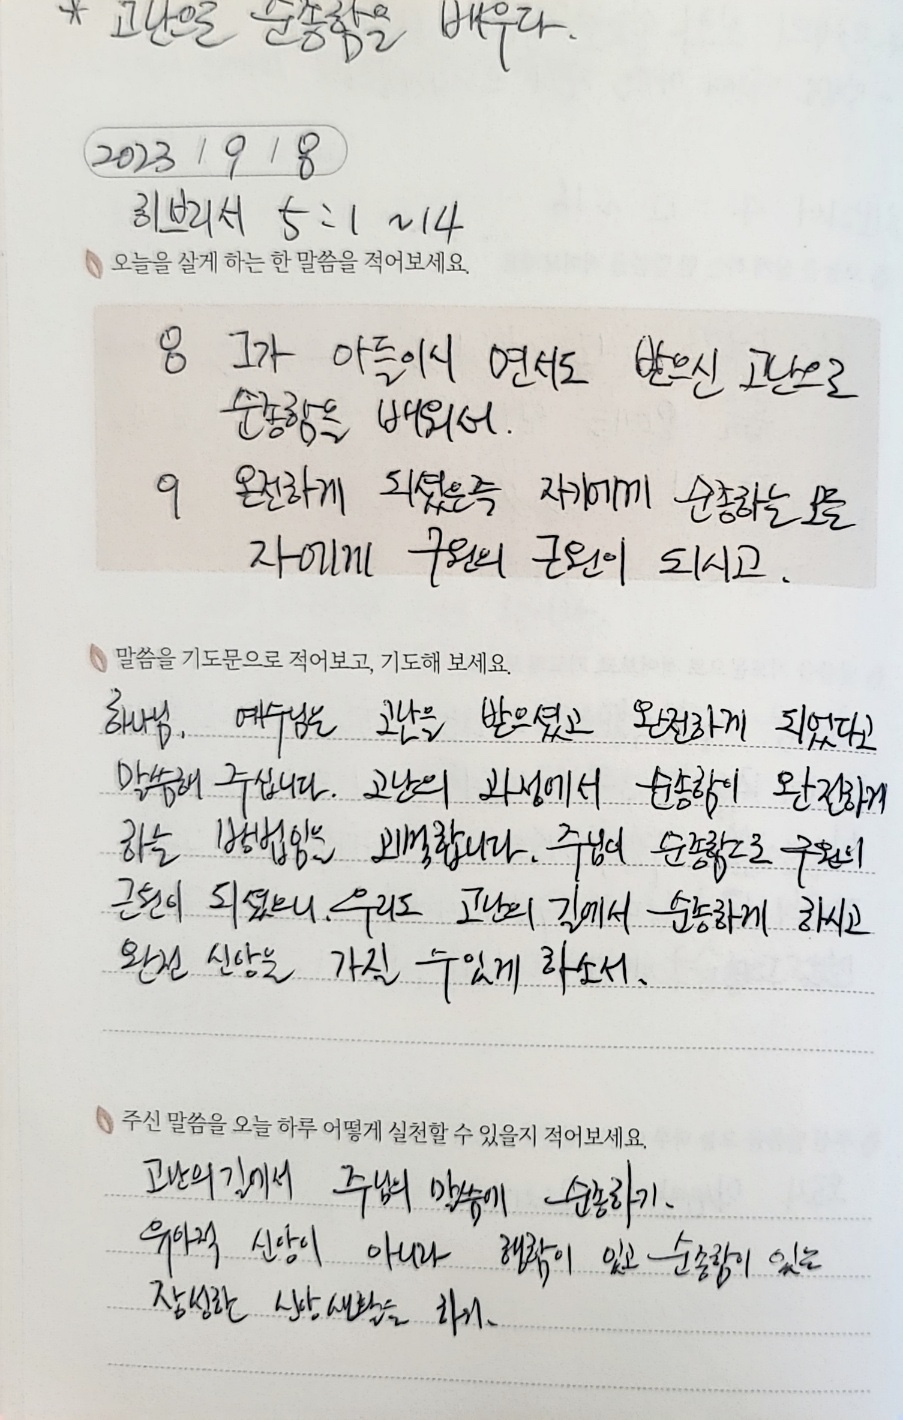 * 고난으로 순종함을 배우다.
2023 / 9 / 8
히브리서 5:1 ~14
오늘을 살게 하는 한 말씀을 적어보세요.
8 그가 아들이시 면서도 받으신 고난으로
순종함을 배워서.
9 온전하게 되셨은즉 자기에게 순종하는 모든
자에게 구원의 근원이 되시고.
말씀을 기도문으로 적어보고, 기도해 보세요.
하나님. 예수님은 고난을 받으셨고 완전하게 되었다고
말씀해 주십니다. 고난의 과정에서 순종함이 완전하게
하는 방법임을 고백합니다. 주님이 순종함으로 구원의
근원이 되셨으니. 우리도 고난의 길에서 순종하게 하시고
완전 신앙을 가질 수있게 하소서.
주신 말씀을 오늘 하루 어떻게 실천할 수 있을지 적어보세요.
고난의길에서 주님의 말씀에 순종하기.
유아적 신앙이 아니라 행함이 있고 순종함이 있는
장성한 신앙생활을 하기.